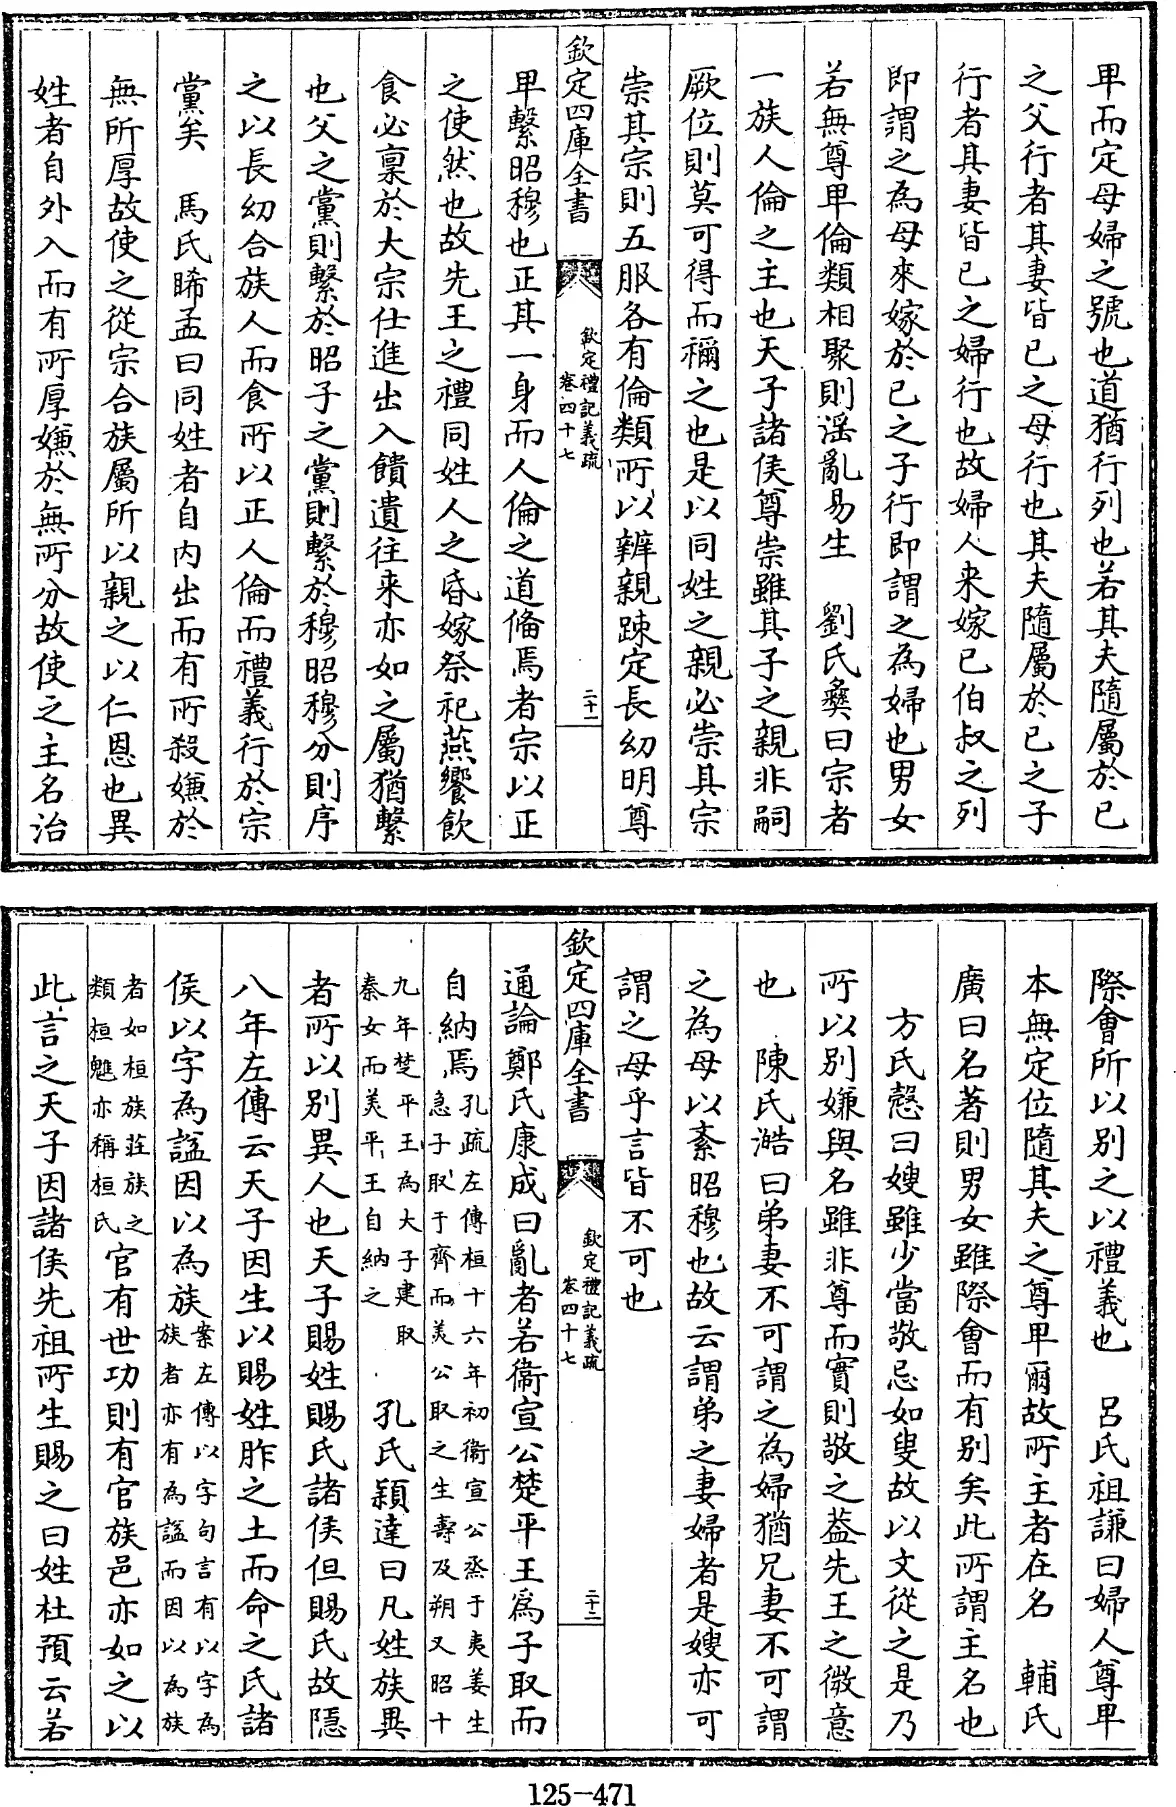 卑而定母婦之號也道猶行列也若其夫隨屬於已
之父行者其妻皆已之母行也其夫隨屬於已之子
行者其妻皆已之婦行也故婦人來嫁已伯叔之列
即謂之為母來嫁於已之子行即謂之為婦也男女
若無尊卑倫類相聚則滛亂易生　劉氏彝曰宗者
一族人倫之主也天子諸侯尊崇雖其子之親非嗣
厥位則莫可得而禰之也是以同姓之親必崇其宗
崇其宗則五服各有倫類所以辨親踈定長幼明尊
欽定四庫全書
欽定禮記義疏
卷四十七
二十一
卑繫昭穆也正其一身而人倫之道偹焉者宗以正
之使然也故先王之禮同姓人之昏嫁祭祀燕饗飲
食必稟於大宗仕進出入饋遺往来亦如之屬猶繫
也父之黨則繫於昭子之黨則繫於穆昭穆分則序
之以長幼合族人而食所以正人倫而禮義行於宗
黨矣　馬氏晞孟曰同姓者自内出而有所殺嫌於
無所厚故使之從宗合族屬所以親之以仁恩也異
姓者自外入而有所厚嫌於無所分故使之主名治
際會所以別之以禮義也　呂氏祖謙曰婦人尊卑
本無定位隨其夫之尊卑爾故所主者在名　輔氏
廣曰名著則男女雖際會而有别矣此所謂主名也
方氏慤曰嫂雖少當敬忌如叟故以文從之是乃
所以别嫌與名雖非尊而實則敬之葢先王之微意
也　陳氏澔曰弟妻不可謂之為婦猶兄妻不可謂
之為母以紊昭穆也故云謂弟之妻婦者是嫂亦可
謂之母乎言皆不可也
欽定四庫全書
欽定禮記義疏
卷四十七
二十二
通論鄭氏康成曰亂者若衞宣公楚平王爲子取而
自納焉孔疏左傳桓十六年初衞宣公烝于夷姜生
急子取于齊而美公取之生壽及朔又昭十
九年楚平王為大子建取
秦女而美平王自納之　孔氏頴達曰凡姓族異
者所以别異人也天子賜姓賜氏諸侯但賜氏故隱
八年左傳云天子因生以賜姓胙之土而命之氏諸
侯以字為諡因以為族案左傳以字句言有以字為
族者亦有為諡而因以為族
者如桓族莊族之
類桓魋亦稱桓氏官有世功則有官族邑亦如之以
此言之天子因諸侯先祖所生賜之曰姓杜預云若
125-471